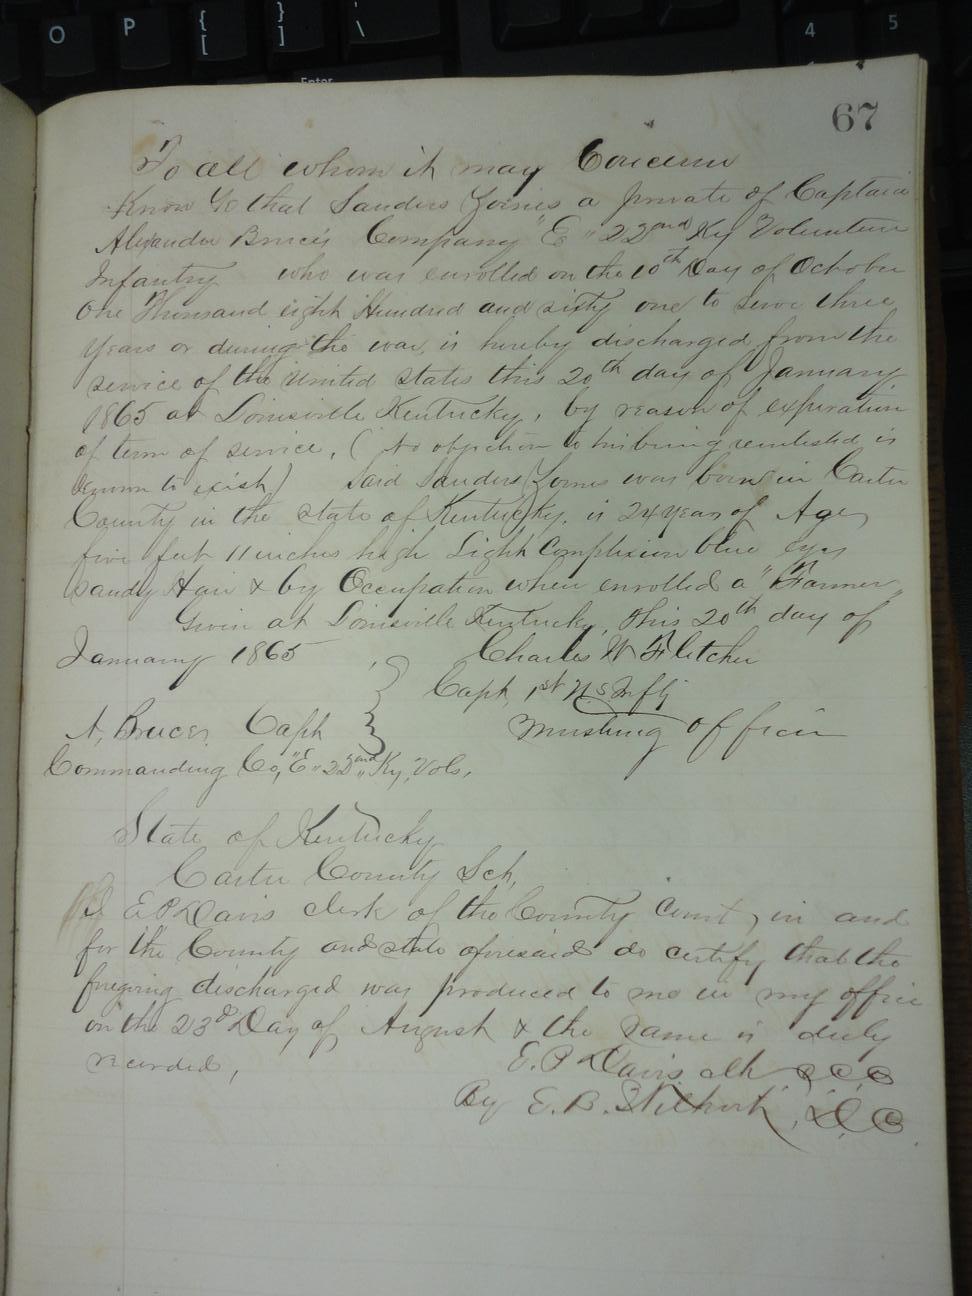 O P { [ } ] | \ 4 5
Enter
67
To all whom it may Concern
Know Ye that Sanders a private of Captain
Alexander Bruce's Company "E" 22nd Ky Volunteer
Infantry who was enrolled on the 10th Day of October
One Thousand eight Hundred and sixty one to serve three
years or during the war, is hereby discharged from the
service of the United States this 20th day of January
1865 at Louisville Kentucky, by reason of expiration
of term of service, (No objection to reenlisted is
known to exist) Said Sanders was born in Carter
County in the state of Kentucky, is 24 years of Age
five feet 11 inches high Light Complexion blue eyes
Sandy Hair & by Occupation when enrolled a "Farmer"
Given at Louisville Kentucky, this 20th day of
January 1865 Charles W Fletcher
Capt, 1st U.S. Infty
A, Bruce, Capt Mustring officer
Commanding Co, "E" 22nd Ky, Vols,
State of Kentucky
Carter County Sct,
I E P Davis clerk of the County Court, in and
for the County and state aforesaid do certify that the
foregoing discharged was produced to me in my office
on the 23rd Day of August & the same is duly
recorded,
E. P Davis clk C C C
By E. B. D, C